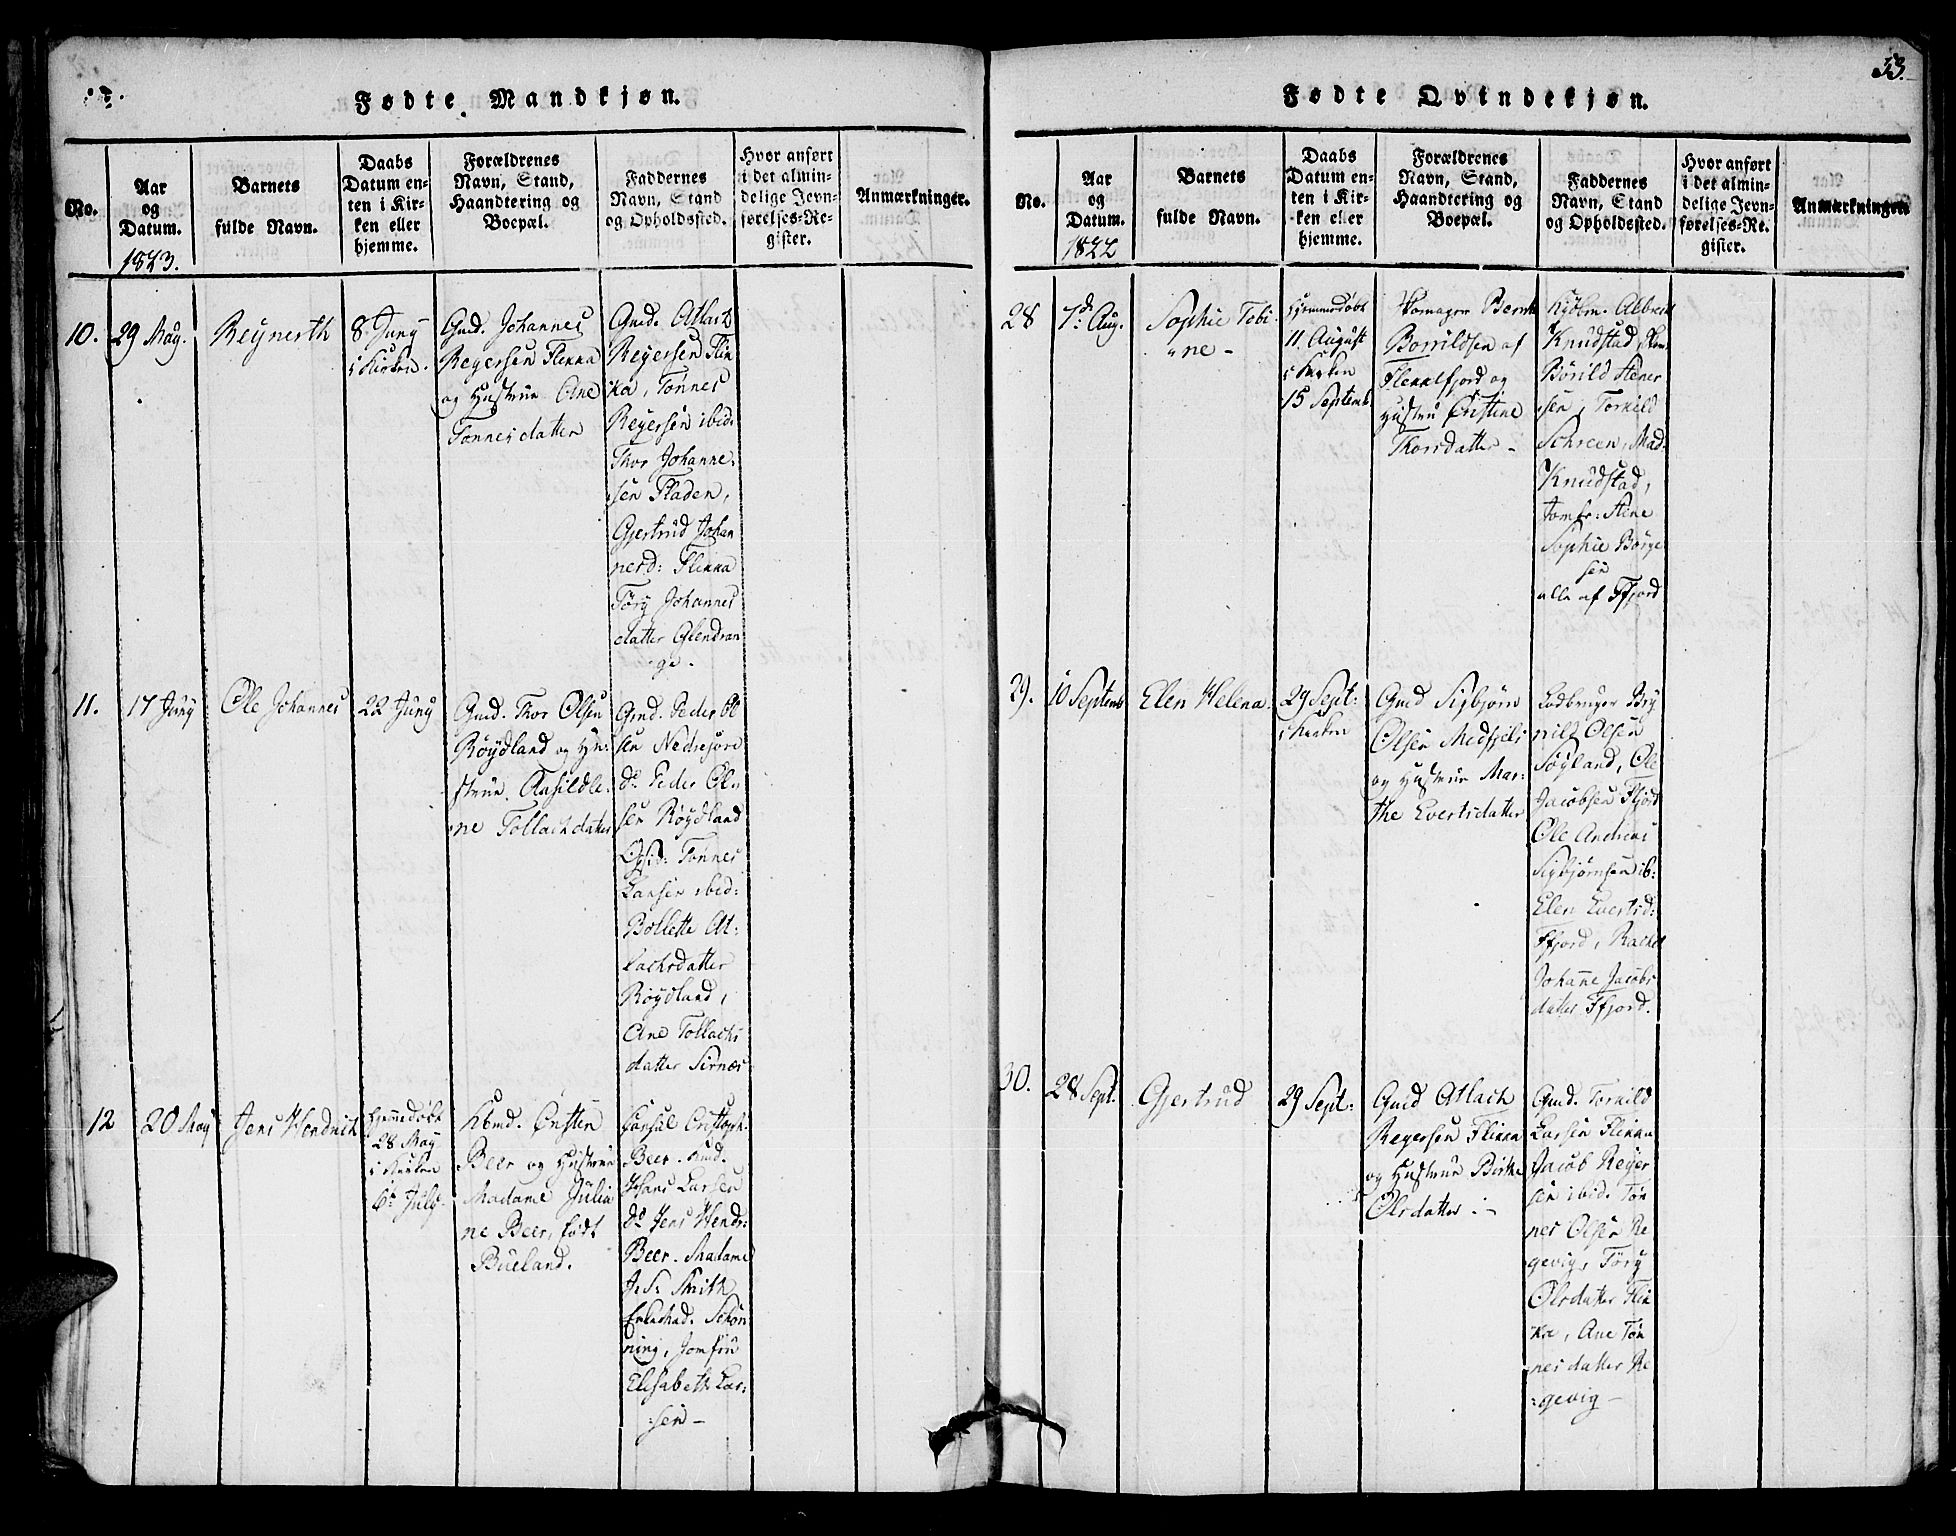 Fødte Mandkjøn.
No.
Aar
og
Datum.
1823.
Barnets
fulde Navn.
Daabs
Datum en-
ten i Kir-
ken eller
hjemme.
Forældrenes
Navn, Stand,
Haandtering og
Boepæl.
Faddernes
Navn, Stand
og Opholdssted.
Hvor anført
i det almin-
delige Jevn-
førelses-Re-
gister.
Anmærkninger.
10.
29 May.
Reynerth
8. Juny
i Kirken.
Gmd. Johannes
Reyersen Flikka
og Hustrue Ane
Tønnesdatter
Gmd. Atlack
Reyersen Flik
ka, Tønnes
Reyersen ibid.
Thor Johanne-
sen Fladen,
Gjertrud Johan
nesd: Flikka
Töry Johannes
datter Glendran
ge.
11.
17 Juny
Ole Johannes
22 Juny
Gmd. Thor Olsen
Röydland og Hu-
strue. Aasildle-
ne Tollachdatter
Gmd. Peder Ol
sen Nedrejore
do Peder Ol
sen Röydland
Tönnes
Larsen ibid:
Bollette At-
lachsdatter
Röydland,
Ane Tollachs
datter Sirnæs
12
20 May
Jens Hendrich
Hjemmedöbt
28 May
i Kirken
6. July.
Kbmd. Cristen
Beer og Hustrue
Madame Julia
ne Beer, født
Bueland.
Consul Cristoph.
Beer. Kmd.
Hans Larsen
do Jens Hendr:
Beer. Madame
J. S. Smith
Schön
ning, Jomfru
Elisabeth Lar-
sen –
53.
Fødte Qvindekjøn.
No.
Aar
og
Datum.
1822
Barnets
fulde Navn.
Daabs
Datum en-
ten i Kir-
ken eller
hjemme.
Forældrenes
Navn, Stand,
Haandtering og
Boepæl.
Faddernes
Navn, Stand
og Opholdssted.
Hvor anført
i det almin-
delige Jevn-
førelses-Re-
gister.
Anmærkninger
28
7de Aug.
Sophie Tobi
ne –
Hjemmedöbt
11. August
i Kirken
15 Septemb.
Skomager Bernt
Borrildsen af
Flekkefjord og
Hustru Cristine
Thorsdatter –
Kjöbm. Albrecht
Knudstad,
Börild Stener
sen, Torkild
Schreen, Mad:
Knudstad,
Jomfr: Stine
Sophie Börge
sen
alle af Ffjord
29.
10 Septemb
Elen Helena.
29 Sept:
i Kirken
Gmd Sigbjörn
Olsen Medfjeli
og Hustrue Mar-
the Evertsdatter
Lodbruger Bry
nild Olsen
Söyland, Ole
Jacobsen Ffjord
Ole Andreas
Sigbjörnsen ib:
Elen Evertsd:
Ffjord, Rachel
Johanne Jacobs
datter Ffjord.
30.
28 Sept.
Gjertrud
29 Sept:
Gmd Atlach
Reyersen Flikka
og Hustrue Birthe
Olsdatter. –
Gmd. Torkild
Larsen Flikka
Jacob Reyer
sen ibid. Tön
nes Olsen Re
gevig, Töry
Olsdatter Flik
ka, Ane Tön
nesdatter Re
gevig –